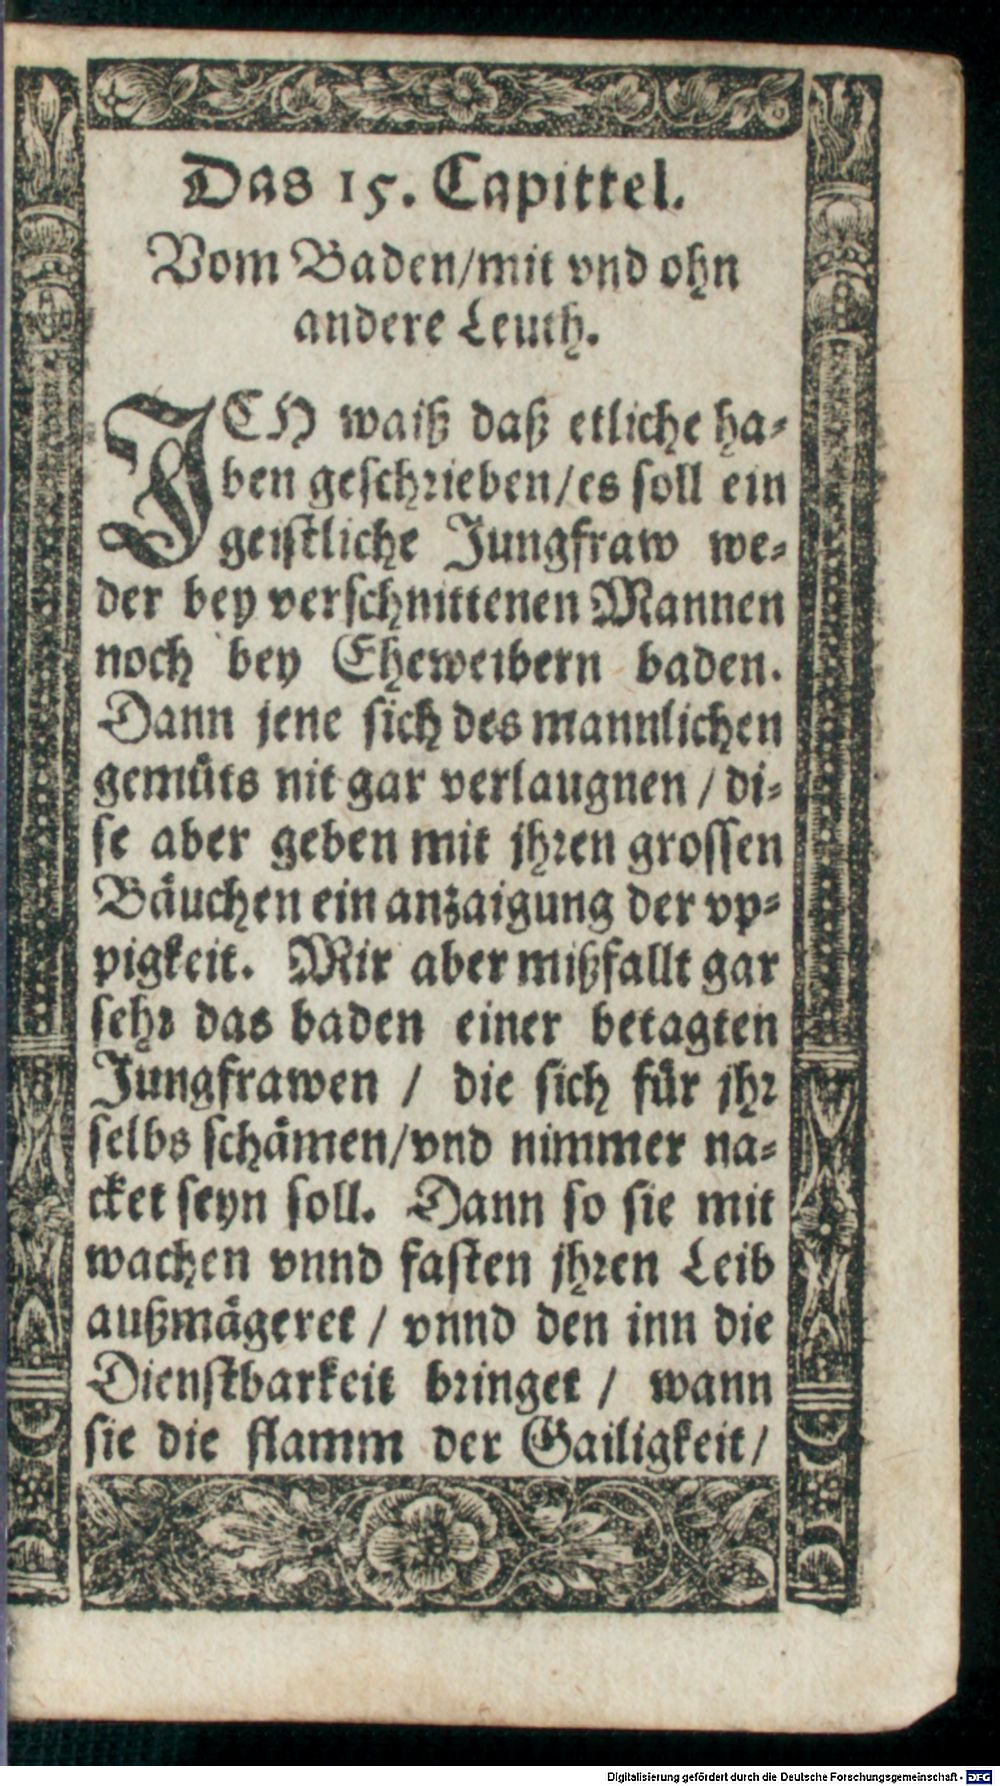 Das 15. Capittel.
Vom Baden/mit vnd ohn
andere Leuth.
ICH waiß daß etliche ha-
ben geschrieben/es soll ein
geistliche Jungfraw we-
der bey verschnittenen Mannen
noch bey Eheweibern baden.
Dann jene sich des mannlichen
gemüts nit gar verlaugnen / di-
se aber geben mit jhren grossen
Bäuchen ein anzaigung der vp-
pigkeit. Mir aber mißfallt gar
sehr das baden einer betagten
Jungfrawen / die sich für jhr
selbs schämen/vnd nimmer na-
cket seyn soll. Dann so sie mit
wachen vnnd fasten jhren Leib
außmägeret / vnnd den inn die
Dienstbarkeit bringet / wann
sie die flamm der Gailigkeit/
Digitalisierung gefördert durch die Deutsche Forschungsgemeinschaft - DFG